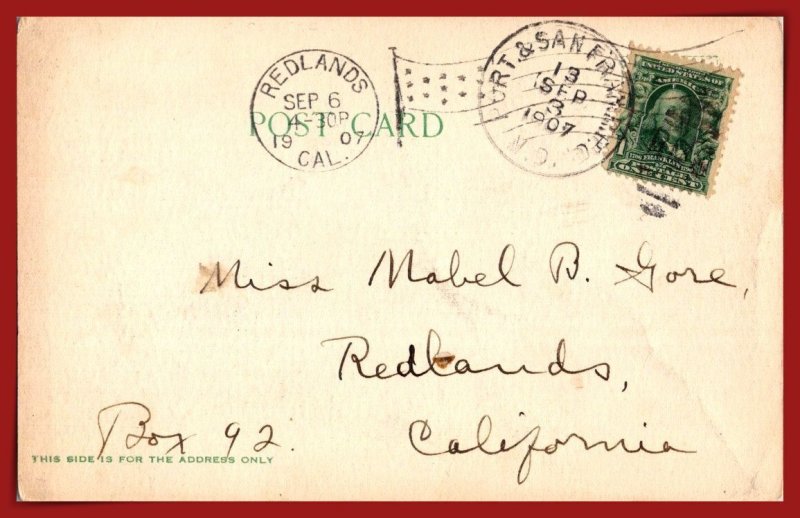 REDLANDS
SEP 6
4-30P
1907
CAL.
PORT. & SAN FRAN. R.P.O.
13
SEP
3
1907
UNITED STATES OF
ONE CENT
POST CARD
Miss Mabel B. Gore,
Redlands,
California
Box 92.
THIS SIDE IS FOR THE ADDRESS ONLY